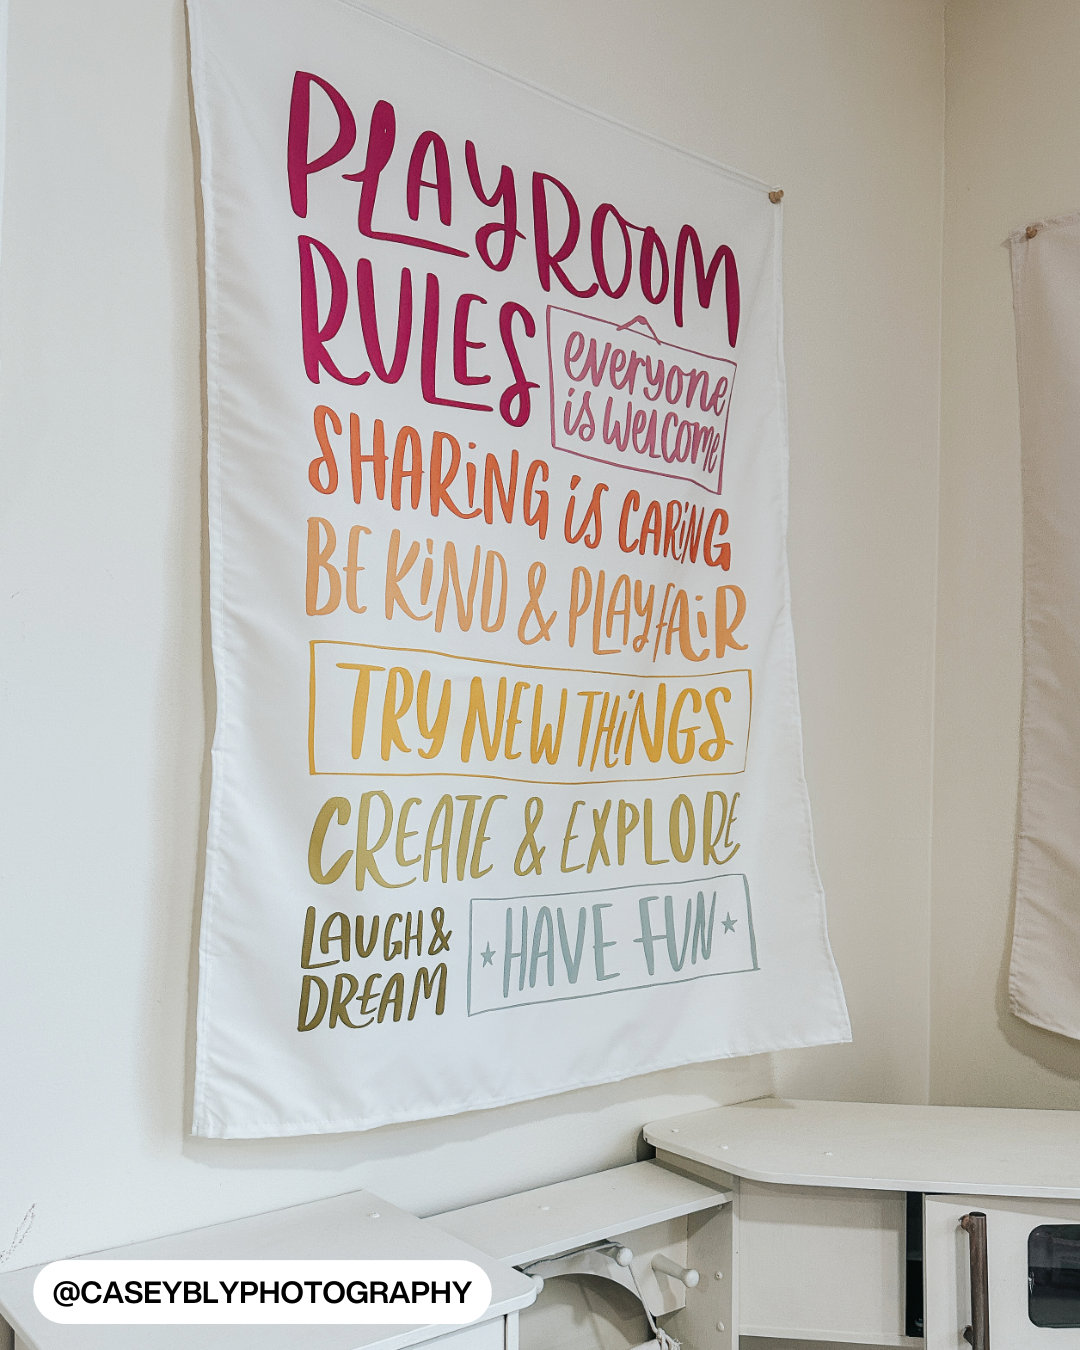 PLAYROOM
RULES
everyone
is welcome
SHARiNG iS CARiNG
BE KiND & PLAY FAiR
TRY NEW THiNGS
CREATE & EXPLORE
LAUGH &
DREAM
★ HAVE FUN ★
@CASEYBLYPHOTOGRAPHY